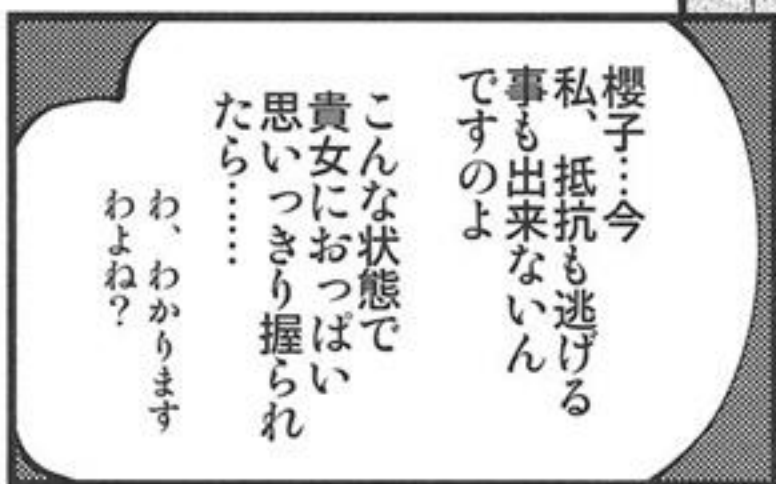 櫻子…今
私、抵抗も逃げる
事も出来ないん
ですのよ
こんな状態で
貴女におっぱい
思いっきり握られ
たら……
わ、わかります
わよね？